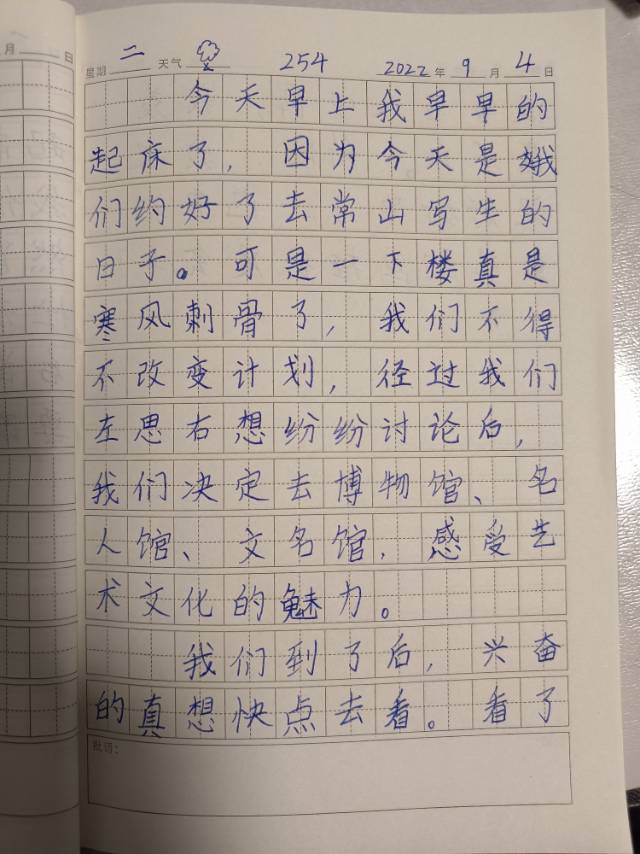 月 日
星期 二 天气 254 2022 年 9 月 4 日
今天早上我早早的
起床了，因为今天是我
们约好了去常山写生的
日子。可是一下楼真是
寒风刺骨了，我们不得
不改变计划，径过我们
左思右想纷纷讨论后，
我们决定去博物馆、名
人馆、文名馆，感受艺
术文化的魅力。
我们到了后，兴奋
的真想快点去看。看了
批语：